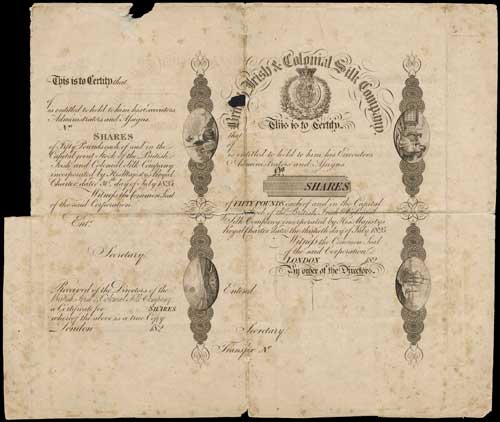 This is to Certify that
is entitled to hold to him his Executors
Administrators and Assigns.
No
SHARES
of Fifty Pounds each of and in the
Capital joint Stock of the British,
Irish and Colonial Silk Company
incorporated by His Majestys Royal
Charter dated 30th day of July 1825
Witness the Common Seal
of the said Corporation
Entd.
Secretary.
Received of the Directors of the
British Irish & Colonial Silk Company
a Certificate for SHARES
whereof the above is a true Copy
London 182
British Irish & Colonial Silk Company
This is to Certify,
that
is entitled to hold to him his Executors
Administrators and Assigns
SHARES
of FIFTY POUNDS each of and in the Capital
of the British Irish & Colonial
Silk Company incorporated by His Majestys
Royal Charter dated the thirtieth day of July 1825
Witness the Common Seal
of the said Corporation
LONDON 182
By order of the Directors.
Entered
Secretary
Transfer No